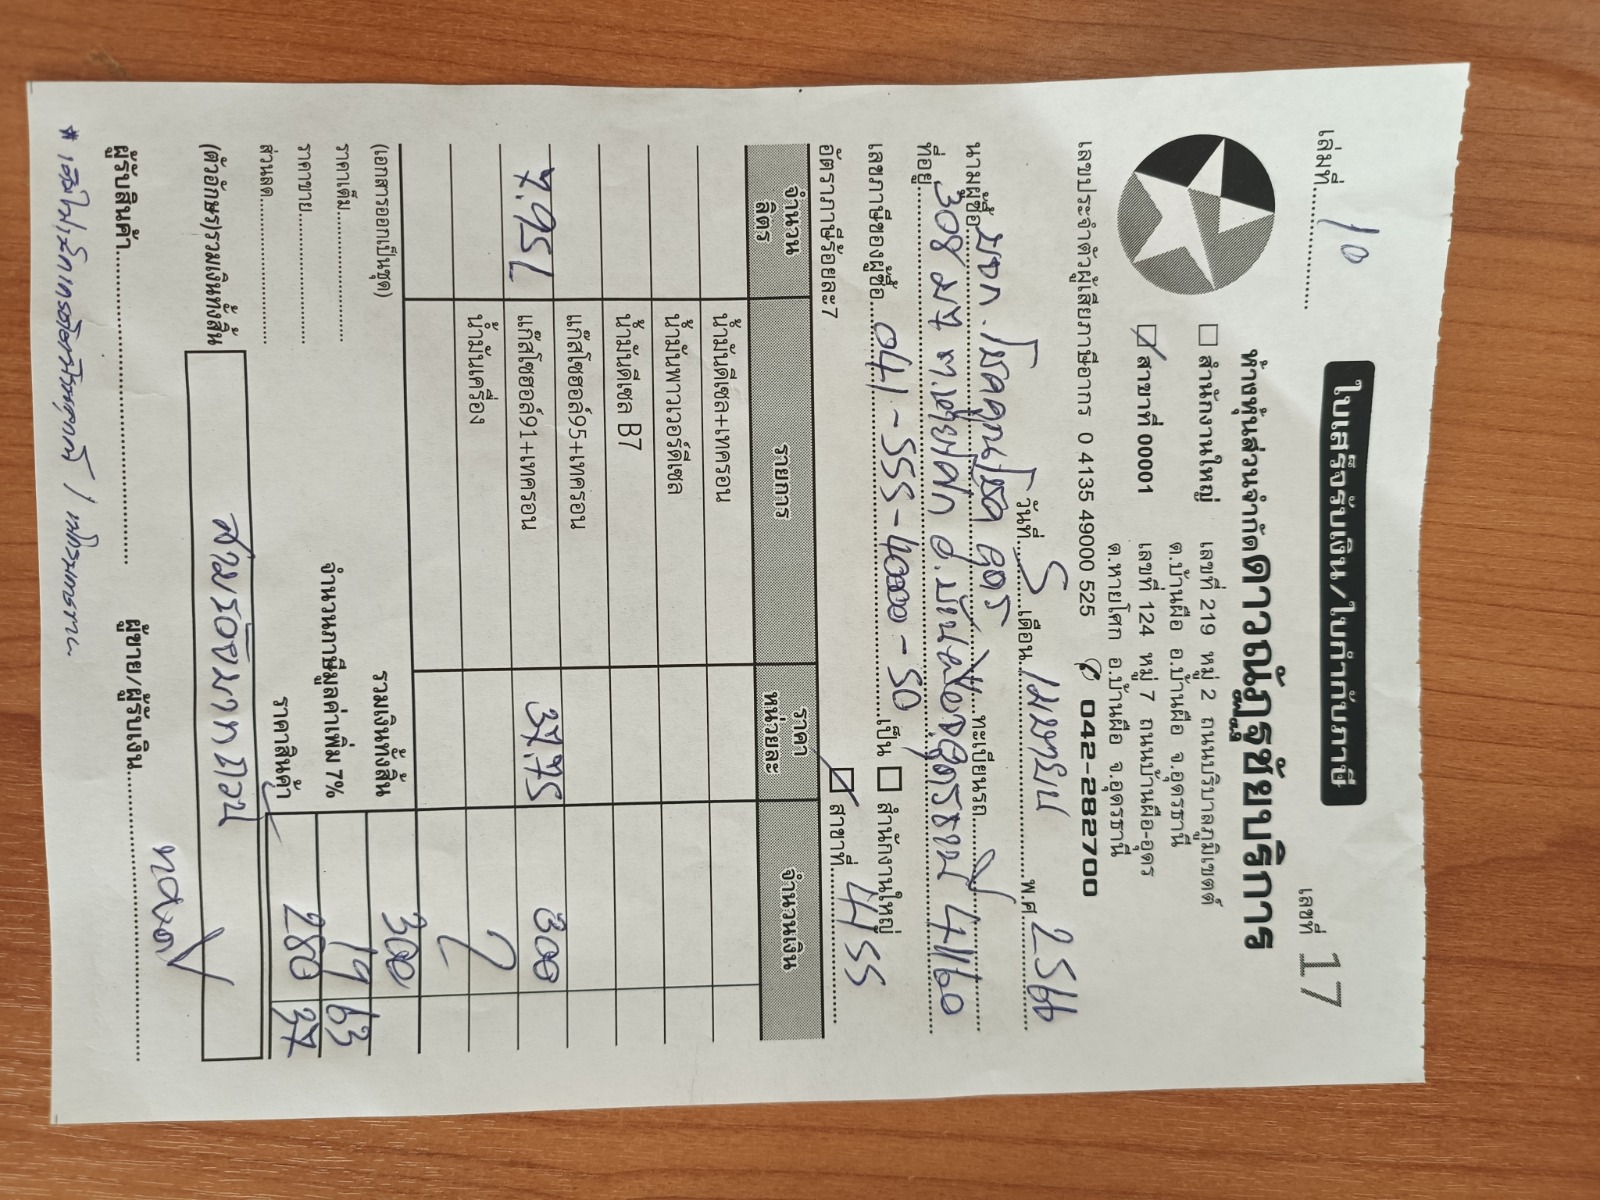 เล่มที่ 10
ใบเสร็จรับเงิน/ใบกำกับภาษี
เลขที่ 17
ห้างหุ้นส่วนจำกัดดาวณัฏฐชัยบริการ
สำนักงานใหญ่ เลขที่ 219 หมู่ 2 ถนนบริบาลภูมิเขตต์
ต.บ้านผือ อ.บ้านผือ จ.อุดรธานี
สาขาที่ 00001 เลขที่ 124 หมู่ 7 ถนนบ้านผือ-อุดร
ต.หายโศก อ.บ้านผือ จ.อุดรธานี
เลขประจำตัวผู้เสียภาษีอากร 0 4135 49000 525 042-282700
วันที่ 5 เดือน เมษายน พ.ศ. 2566
นามผู้ซื้อ หจก. โชคคูณโชค อุดร ทะเบียนรถ
ที่อยู่ 308 ม.7 อ.บ้านผือ จ.อุดรธานี 41160
เลขภาษีของผู้ซื้อ เป็น สำนักงานใหญ่
อัตราภาษีร้อยละ 7 สาขาที่
จำนวนลิตร รายการ ราคาหน่วยละ จำนวนเงิน
น้ำมันดีเซล+เทครอน
น้ำมันพาวเวอร์ดีเซล
น้ำมันดีเซล B7
แก๊สโซฮอล์95+เทครอน
7.95L แก๊สโซฮอล์91+เทครอน 37.75 300
น้ำมันเครื่อง
(เอกสารออกเป็นชุด) รวมเงินทั้งสิ้น 300
ราคาเต็ม จำนวนภาษีมูลค่าเพิ่ม 7% 19 63
ราคาขาย ราคาสินค้า 280 37
ส่วนลด
(ตัวอักษร)รวมเงินทั้งสิ้น สามร้อยบาทถ้วน
ผู้รับสินค้า ผู้ขาย/ผู้รับเงิน